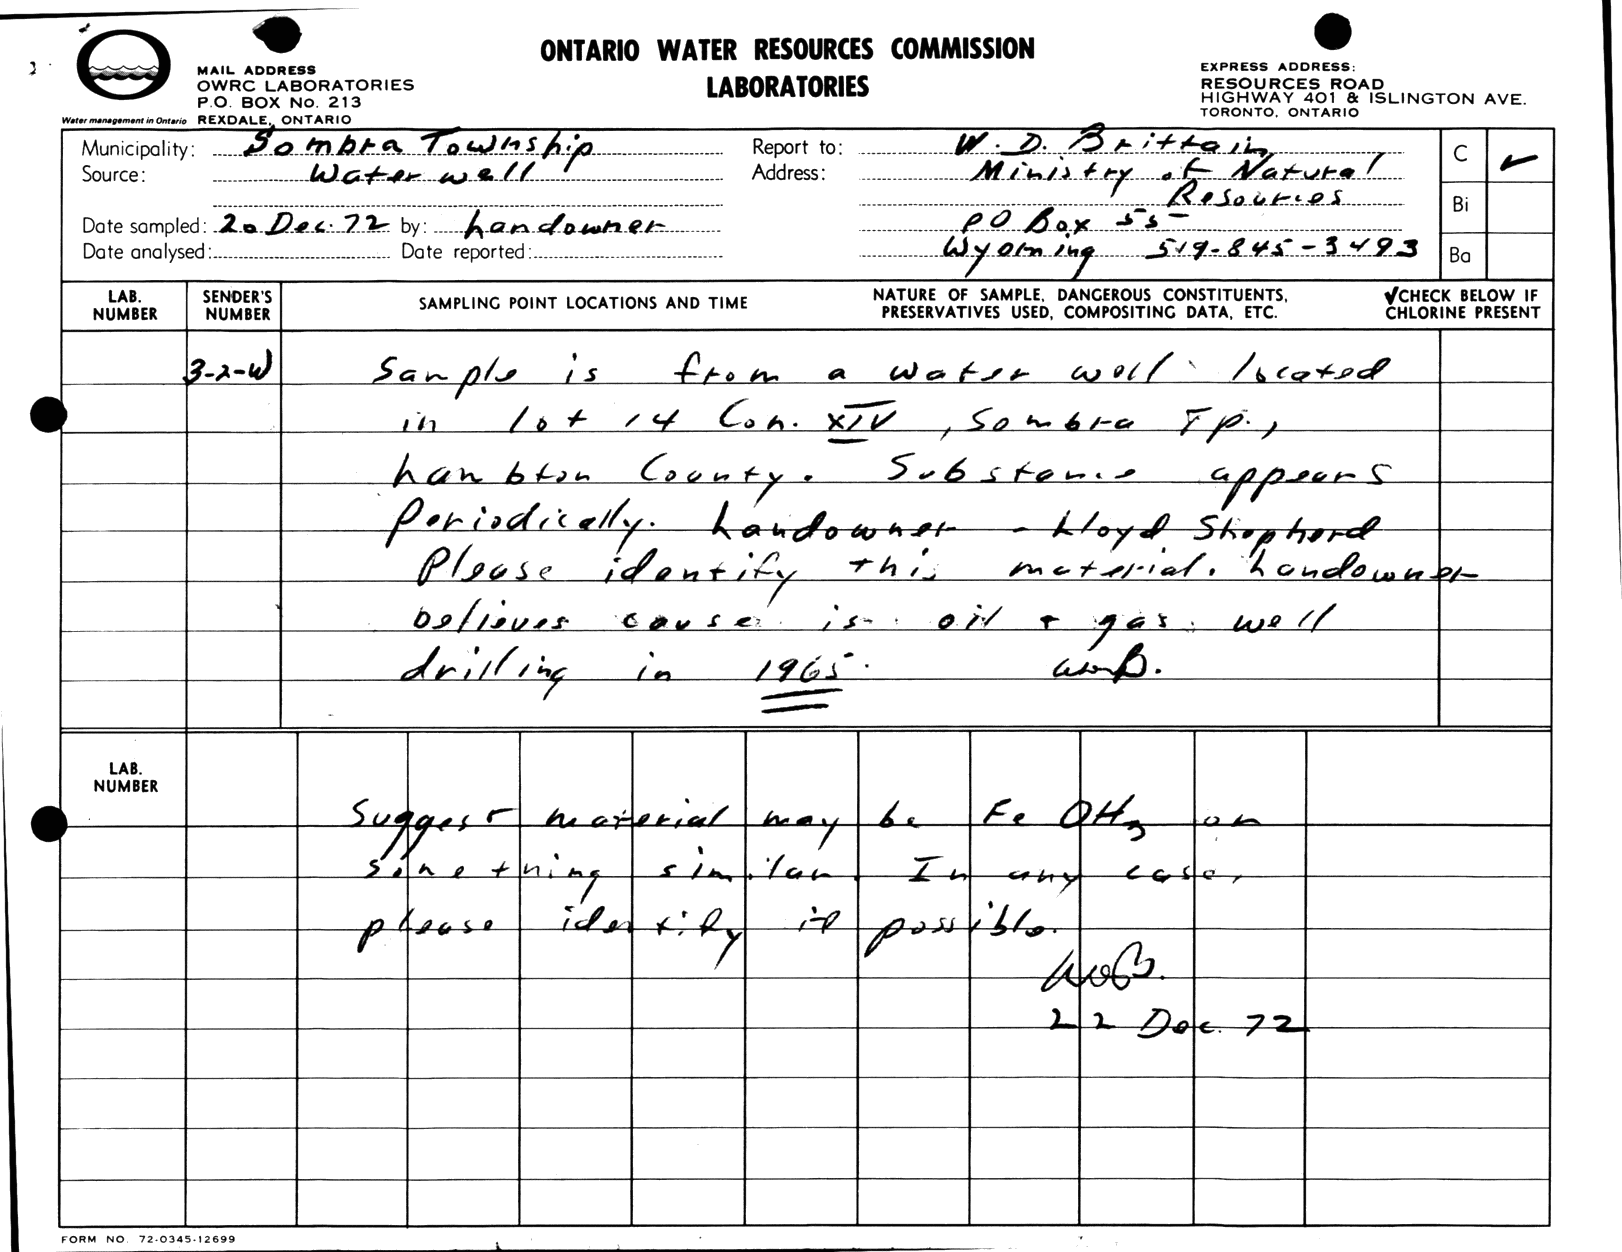 ONTARIO WATER RESOURCES COMMISSION
LABORATORIES
MAIL ADDRESS
OWRC LABORATORIES
P.O. BOX No. 213
REXDALE, ONTARIO
Water management in Ontario
EXPRESS ADDRESS:
RESOURCES ROAD
HIGHWAY 401 & ISLINGTON AVE.
TORONTO, ONTARIO
Municipality: Sombra Township
Source: Water well
Date sampled: 20 Dec. 72 by: Landowner
Date analysed: Date reported:
Report to: W. D. Brittain
Address: Ministry of Natural
Resources
PO Box 55
Wyoming 519-845-3493
C ✓
Bi
Ba
LAB. NUMBER
SENDER'S NUMBER
SAMPLING POINT LOCATIONS AND TIME
NATURE OF SAMPLE, DANGEROUS CONSTITUENTS,
PRESERVATIVES USED, COMPOSITING DATA, ETC.
✓CHECK BELOW IF
CHLORINE PRESENT
3-2-W Sample is from a water well located
in lot 14 Con. XIV, Sombra Tp.,
Lambton County. Substance appears
Periodically. Landowner - Lloyd Shepherd
Please identify this material. Landowner
believes cause is oil + gas well
drilling in 1965. WDB.
LAB. NUMBER
Suggest material may be Fe OH3 or
something similar. In any case,
please identify if possible.
WDB.
22 Dec. 72
FORM NO. 72-0345-12699